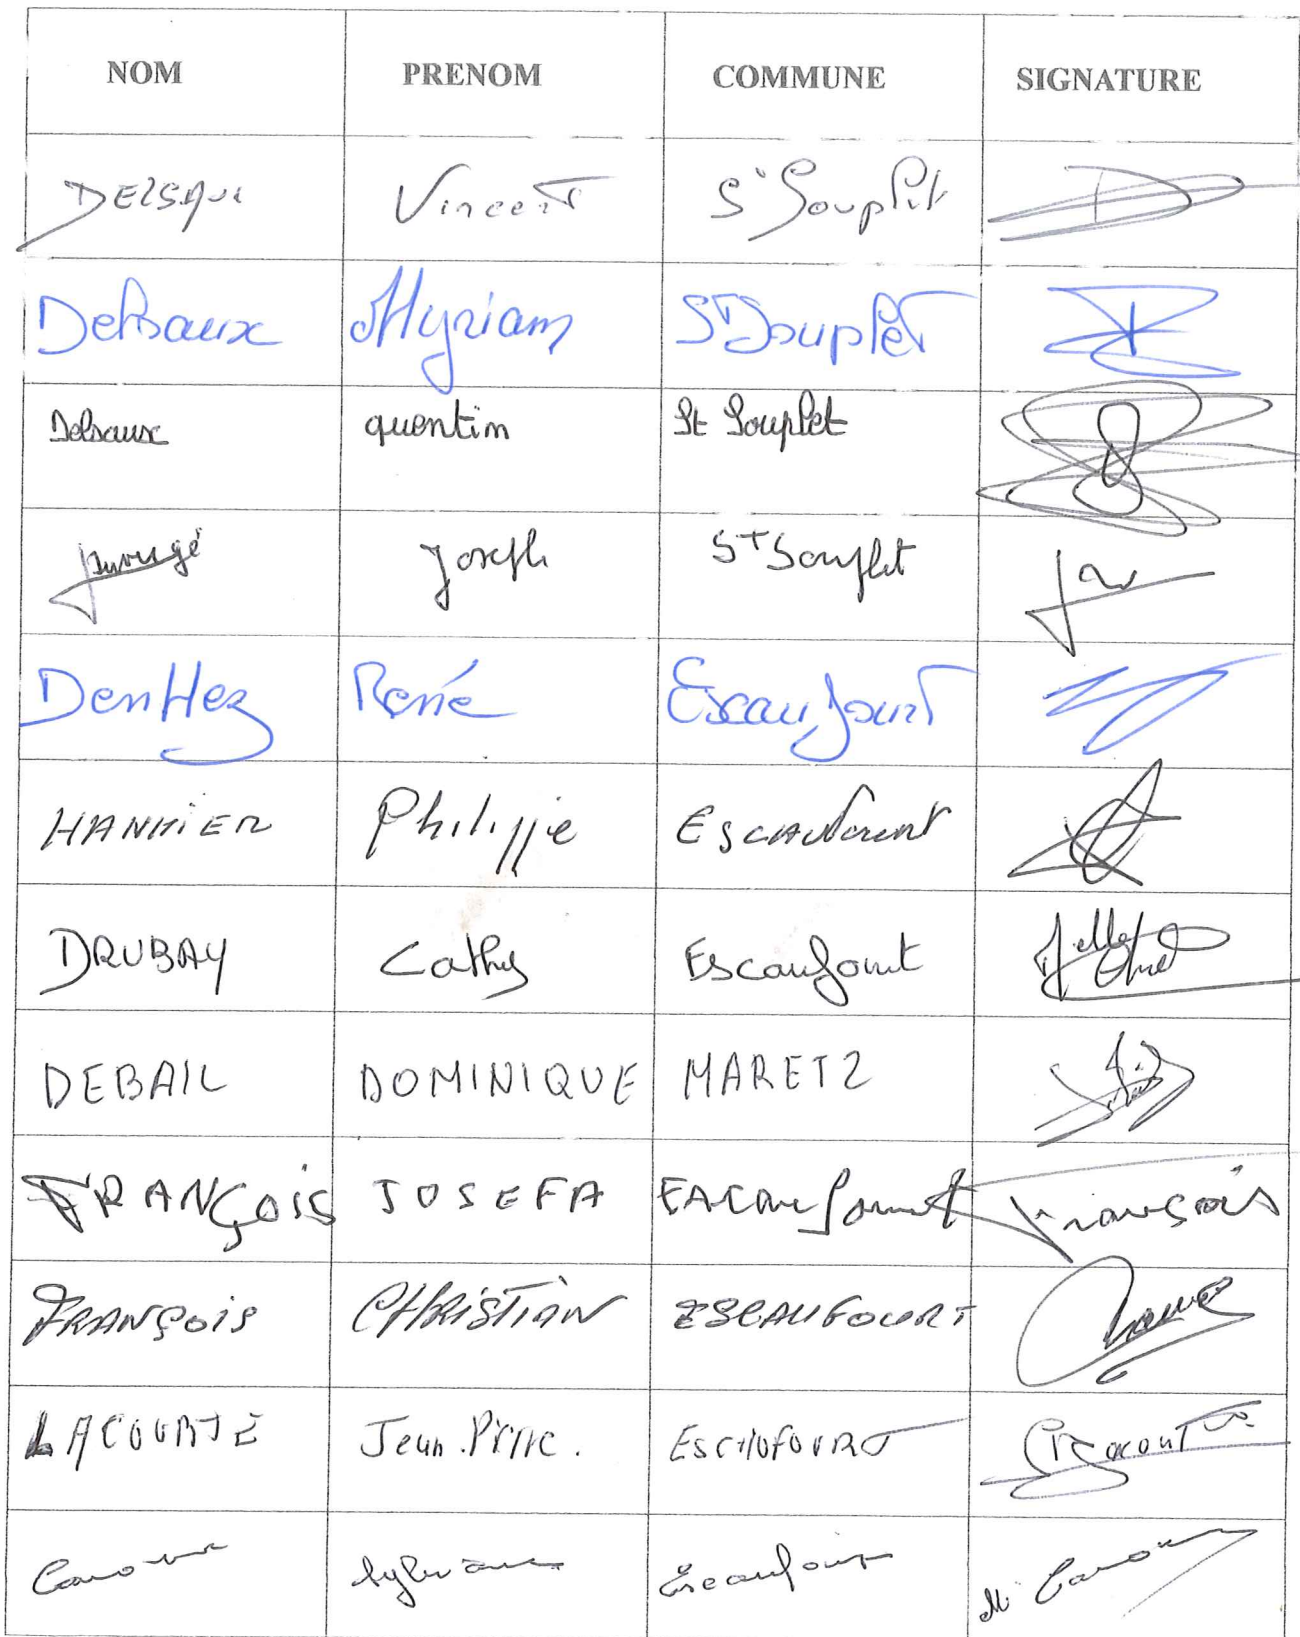 NOM PRENOM COMMUNE SIGNATURE
Vincent St Souplet
Delsaux Myriam St Souplet
Delsaux quentin St Souplet
Joseph St Souplet
DenHez René Escaufourt
HANNIER Philippe Escaufourt
DRUBAY Cathy Escaufourt
DEBAIL DOMINIQUE MARETZ
FRANÇOIS JOSEFA Escaufourt François
FRANÇOIS CHRISTIAN ESCAUFOURT
LACOURTE Jean ESCAUFOURT
Sylviane Escaufourt